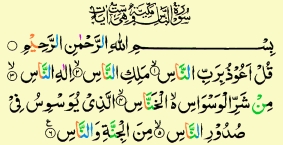 سُوْرَةُ النَّاسِ مَكِّيَّةٌ وَهِيَ سِتُّ اٰيَاتٍ
بِسْمِ اللهِ الرَّحْمٰنِ الرَّحِيْمِ
قُلْ اَعُوْذُ بِرَبِّ النَّاسِ ۙ﴿١﴾ مَلِكِ النَّاسِ ۙ﴿٢﴾ اِلٰهِ النَّاسِ ۙ﴿٣﴾
مِنْ شَرِّ الْوَسْوَاسِ ەۙ الْخَنَّاسِ ۙ﴿٤﴾ الَّذِيْ يُوَسْوِسُ فِيْ
صُدُوْرِ النَّاسِ ۙ﴿٥﴾ مِنَ الْجِنَّةِ وَالنَّاسِ ﴿٦﴾